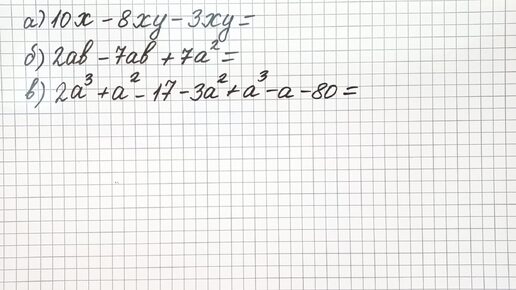 а) 10x - 8xy - 3xy =
б) 2ab - 7ab + 7a² =
в) 2a³ + a² - 17 - 3a² + a³ - a - 80 =